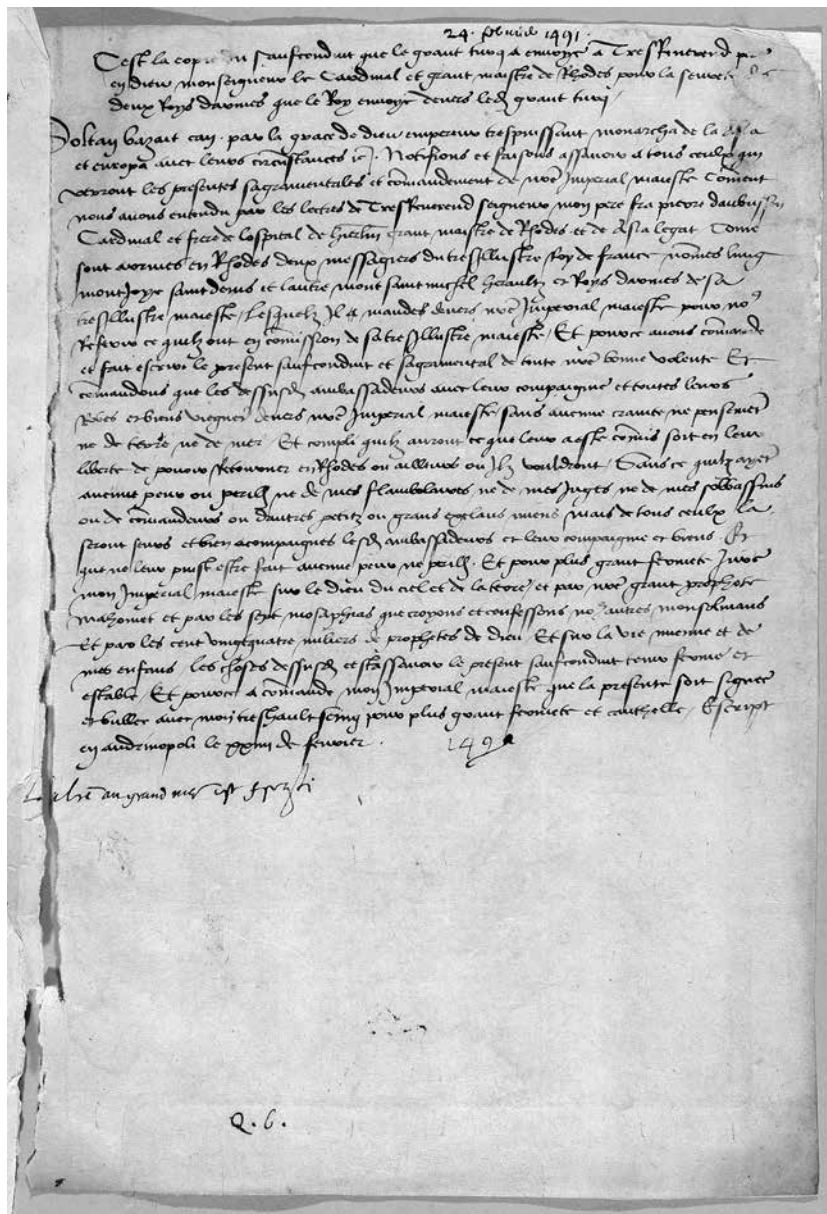 24. febvrier 1491.
Cest la copie du saufconduit que le grant turq a envoye a Tres Reverend pere
en dieu monseigneur le Cardinal et grant maistre de Rhodes pour la seurete de
deux Roys darmes que le Roy envoye devers led grant turq
Soltan bazait can. par la grace de dieu empereur trespuissant monarcha de la Asia
et europa avec leurs circunstances &c. Notifions et faisons assavoir a tous ceulx qui
verront les presentes sagramentales et comandement de nre Imperial maieste Coment
nous avons entendu par les lectres de Tres Reverend seigneur mon pere fra pierre daubusson
Cardinal et frere de lospital de hierlm grant maistre de Rhodes et de Asia legat Come
sont arrives en Rhodes deux messagiers du tresillustre Roy de france nomes lung
montjoye saint denis et lautre mont saint michel heraultz et Roys darmes de sa
tresillustre maieste, Lesquelz Il a mandes devers nre Imperial maieste pour nos
Referir ce quilz ont en comission de sa tresillustre maieste, Et pource avons comande
et fait escrire le present saufconduit et sagramental de toute nre bonne volente Et
comandons que les dessusd ambassadeurs avec leur compaignie et toutes leurs
Robes et biens viegnet devers nre Imperial maieste sans aucune crainte ne pensemet
ne de terre ne de mer. Et compli quilz auront ce que leur a este comis soit en leur
liberte de povoir Retourner en Rhodes ou ailleurs ou Ilz vouldront, Sans ce quilz ayet
aucune peur ou perilh ne de mes flambolaires, ne de mes Juges, ne de mes sobassins
ou de comandeurs ou dautres petiz ou grans esclaus miens mais de tous ceulx la
seront seurs et bien acompaignes lesd ambassadeurs et leur compaignie et biens Et
que ne leur puisse estre fait aucune peur ne perilh. Et pour plus grant fermete Jure
mon Imperial maieste sur le dieu du ciel et de la terre, et par nre grant prophete
mahomet et par les sept mosaphias que croyons et confessons nos autres monselmans
Et par les cent vingtquatre miliers de prophetes de dieu Et sur la vie mienne et de
mes enfans les choses dessusd cest assavoir le present saufconduit tenir ferme et
estable, Et pource a comande mon Imperial maieste que la presente soit signee
et bullee avec mon treshault seing pour plus grant fermete et cauthelle, Escript
en andrinopoli le xxiiii de fevrier. 1491
au grand
Q. 6.